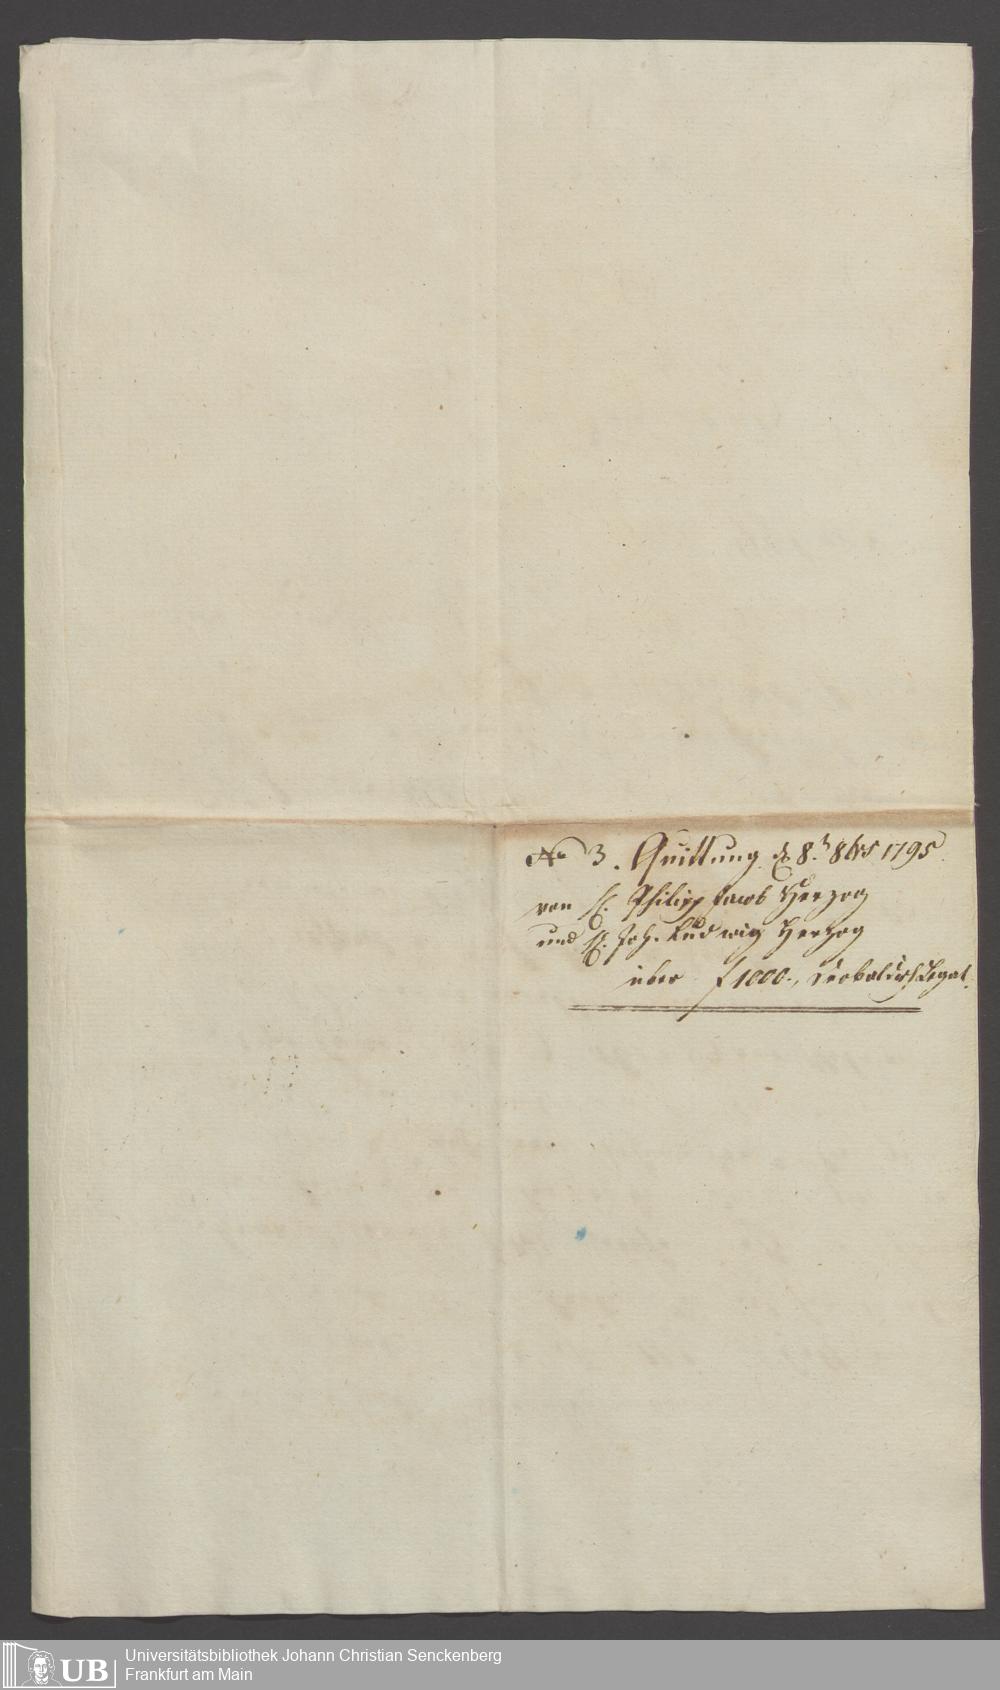 No 3. Quittung d 8.t 8brs 1795.
von H. Philipp Jacob Herzog
und H. Joh. Ludwig Herzog
über f 1000.-, Legat.
Universitätsbibliothek Johann Christian Senckenberg
Frankfurt am Main
UB